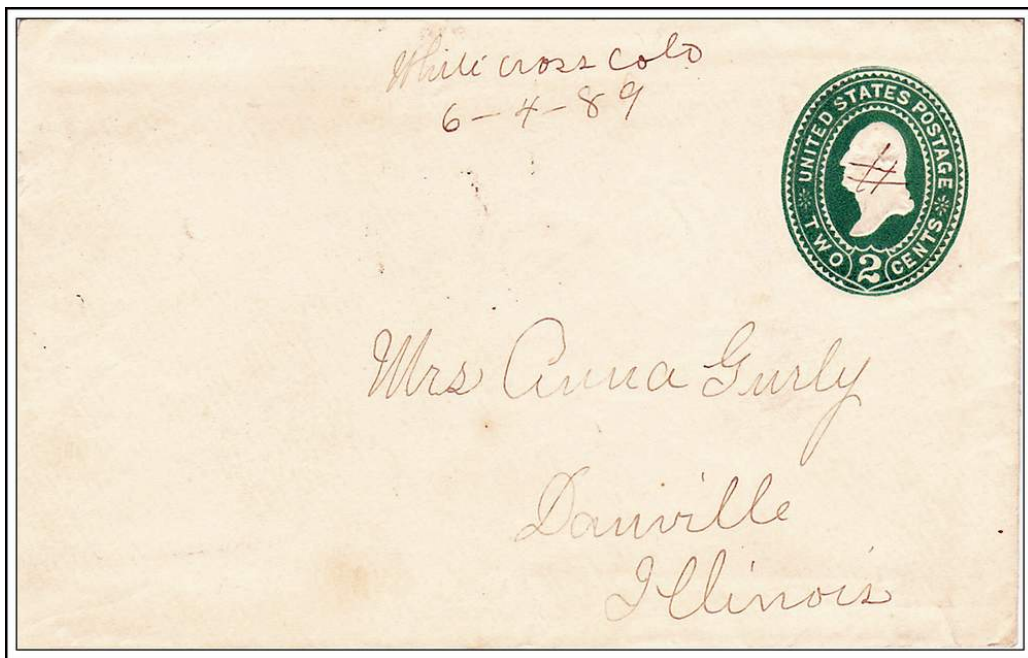 White cross colo
6-4-89
UNITED STATES POSTAGE
TWO 2 CENTS
Mrs Anna Gurly
Danville
Illinois